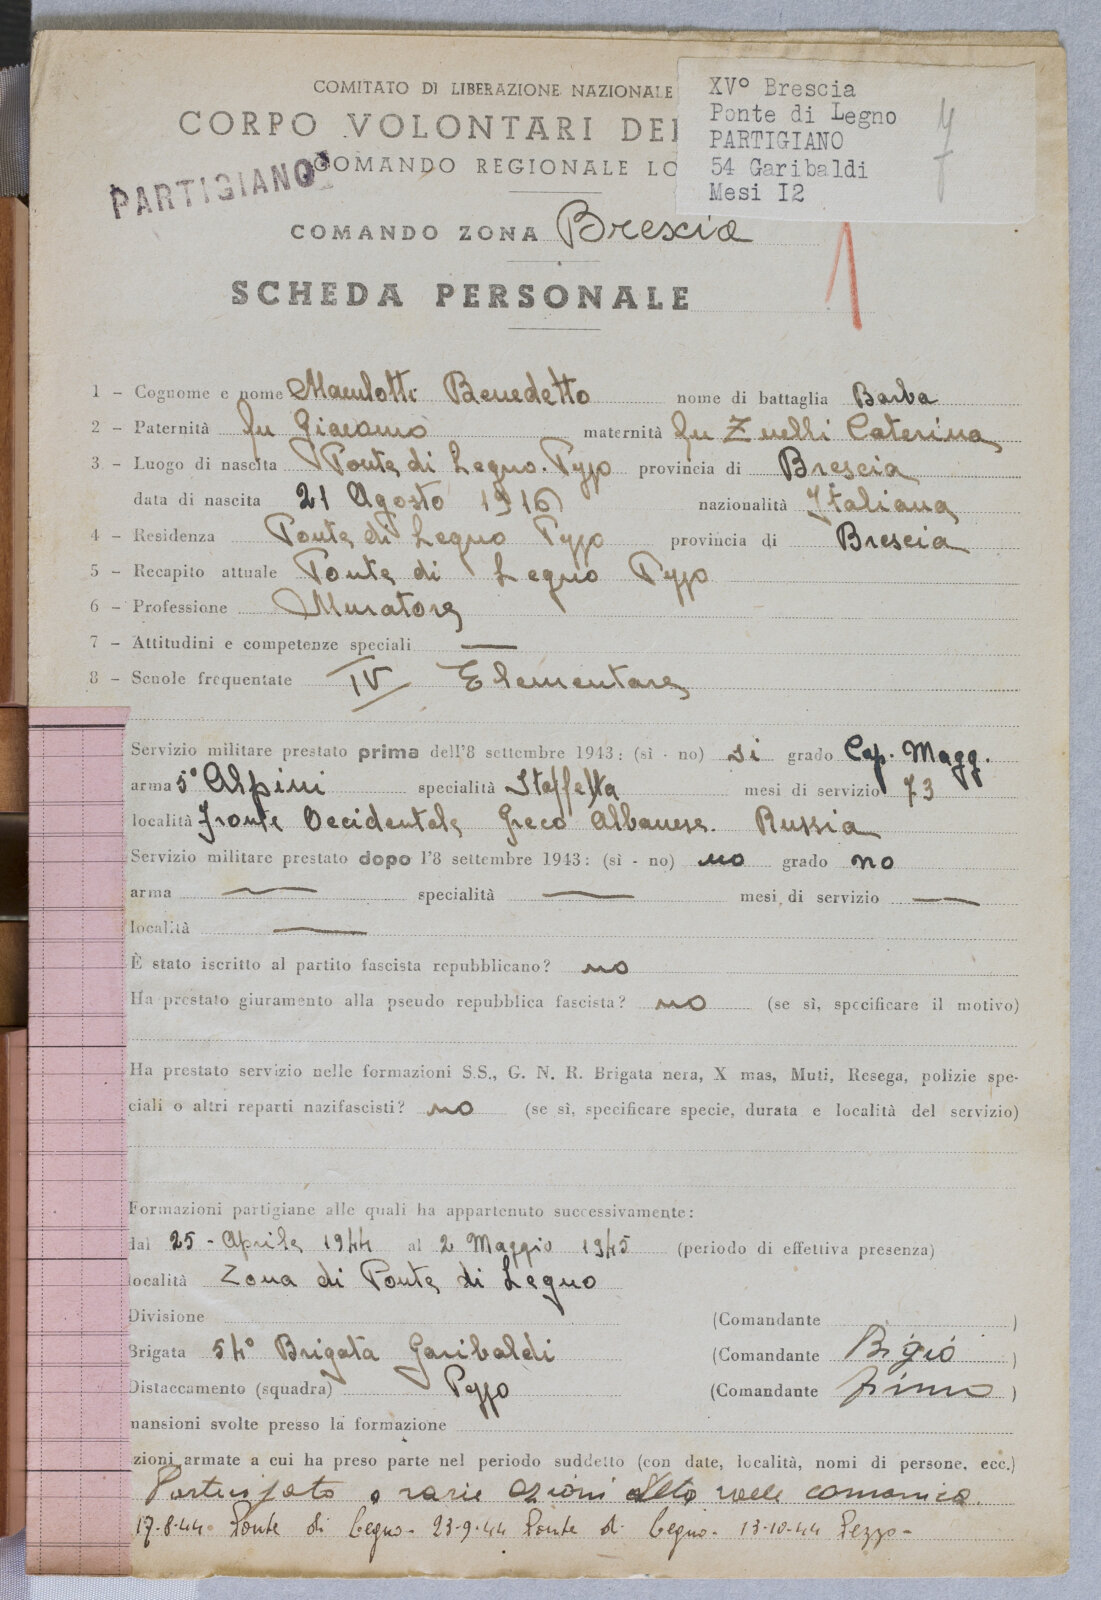 COMITATO DI LIBERAZIONE NAZIONALE
CORPO VOLONTARI DE
COMANDO REGIONALE LO
XVº Brescia
Ponte di Legno
PARTIGIANO
54 Garibaldi
Mesi I2
PARTIGIANO
COMANDO ZONA Brescia
SCHEDA PERSONALE
1 - Cognome e nome Maculotti Benedetto nome di battaglia Barba
2 - Paternità fu Giacomo maternità fu Zuelli Caterina
3 - Luogo di nascita Ponte di Legno. Pezzo provincia di Brescia
data di nascita 21 Agosto 1916 nazionalità Italiana
4 - Residenza Ponte di Legno Pezzo provincia di Brescia
5 - Recapito attuale Ponte di Legno Pezzo
6 - Professione Muratore
7 - Attitudini e competenze speciali —
8 - Scuole frequentate IV Elementare
Servizio militare prestato prima dell'8 settembre 1943: (sì - no) si grado Cap. Magg.
arma 5º Alpini specialità Staffetta mesi di servizio 73
località Fronte Occidentale Greco Albanese. Russia
Servizio militare prestato dopo l'8 settembre 1943: (sì - no) no grado no
arma — specialità — mesi di servizio —
località —
È stato iscritto al partito fascista repubblicano? no
Ha prestato giuramento alla pseudo repubblica fascista? no (se sì, specificare il motivo)
Ha prestato servizio nelle formazioni S.S., G. N. R. Brigata nera, X mas, Muti, Resega, polizie spe-
ciali o altri reparti nazifascisti? no (se sì, specificare specie, durata e località del servizio)
Formazioni partigiane alle quali ha appartenuto successivamente:
dal 25 - Aprile 1944 al 2 Maggio 1945 (periodo di effettiva presenza)
località Zona di Ponte di Legno
Divisione (Comandante )
Brigata 54º Brigata Garibaldi (Comandante Bigio )
Distaccamento (squadra) Pezzo (Comandante )
mansioni svolte presso la formazione
zioni armate a cui ha preso parte nel periodo suddetto (con date, località, nomi di persone, ecc.)
a varie azioni
17-8-44 Ponte di Legno - 23-9-44 Ponte di Legno - 13-10-44 Pezzo -